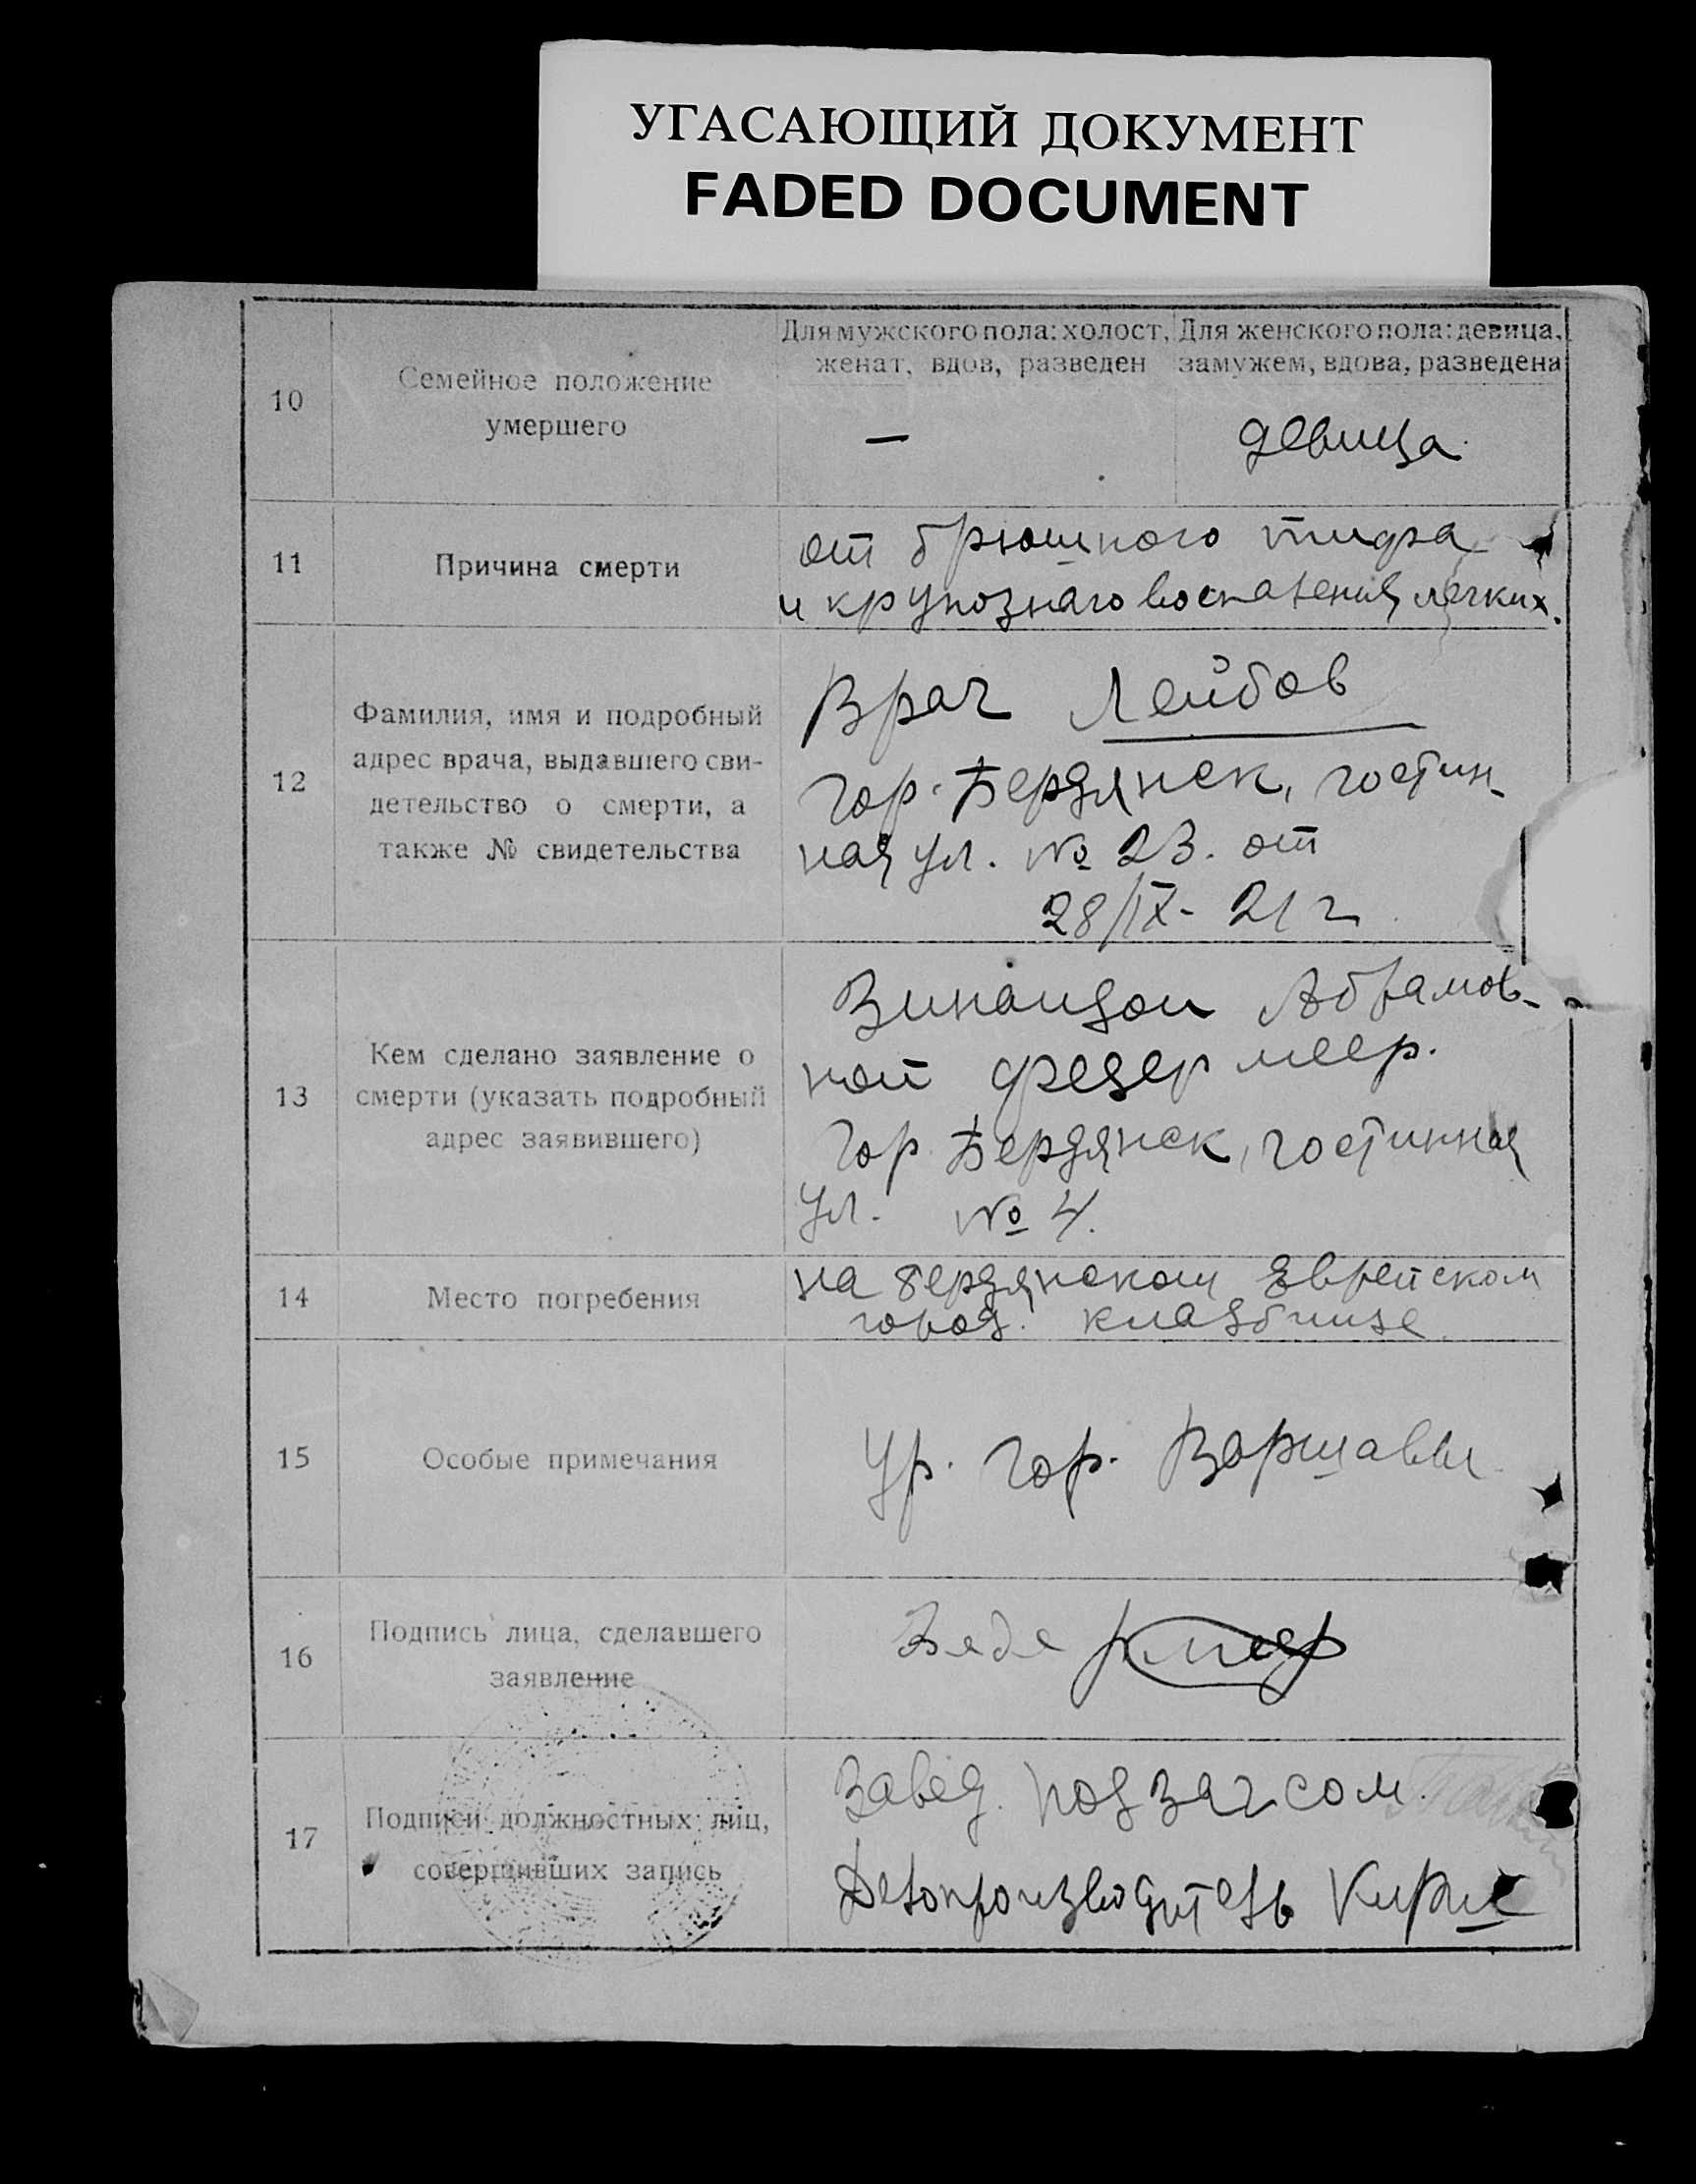 УГАСАЮЩИЙ ДОКУМЕНТ
FADED DOCUMENT
10
Семейное положение
умершего
Для мужского пола: холост,
женат, вдов, разведен
—
Для женского пола: девица,
замужем, вдова, разведена
девица.
11
Причина смерти
от брюшного тифа
и крупознаго воспаления легких.
12
Фамилия, имя и подробный
адрес врача, выдавшего сви-
детельство о смерти, а
также № свидетельства
Врач Лейбов
гор. Бердянск, гостин-
ная ул. № 23. от
28/IX - 21 г
13
Кем сделано заявление о
смерти (указать подробный
адрес заявившего)
Зинаидой Абрамов-
ной федермеер.
гор. Бердянск, гостинная
ул. № 4.
14
Место погребения
на бердянском Еврейском
город. кладбище.
15
Особые примечания
Ур. гор. Варшавы
16
Подпись лица, сделавшего
заявление
17
Подписи должностных лиц,
совершивших запись
Завед. подзагсом.
Делопроизводитель